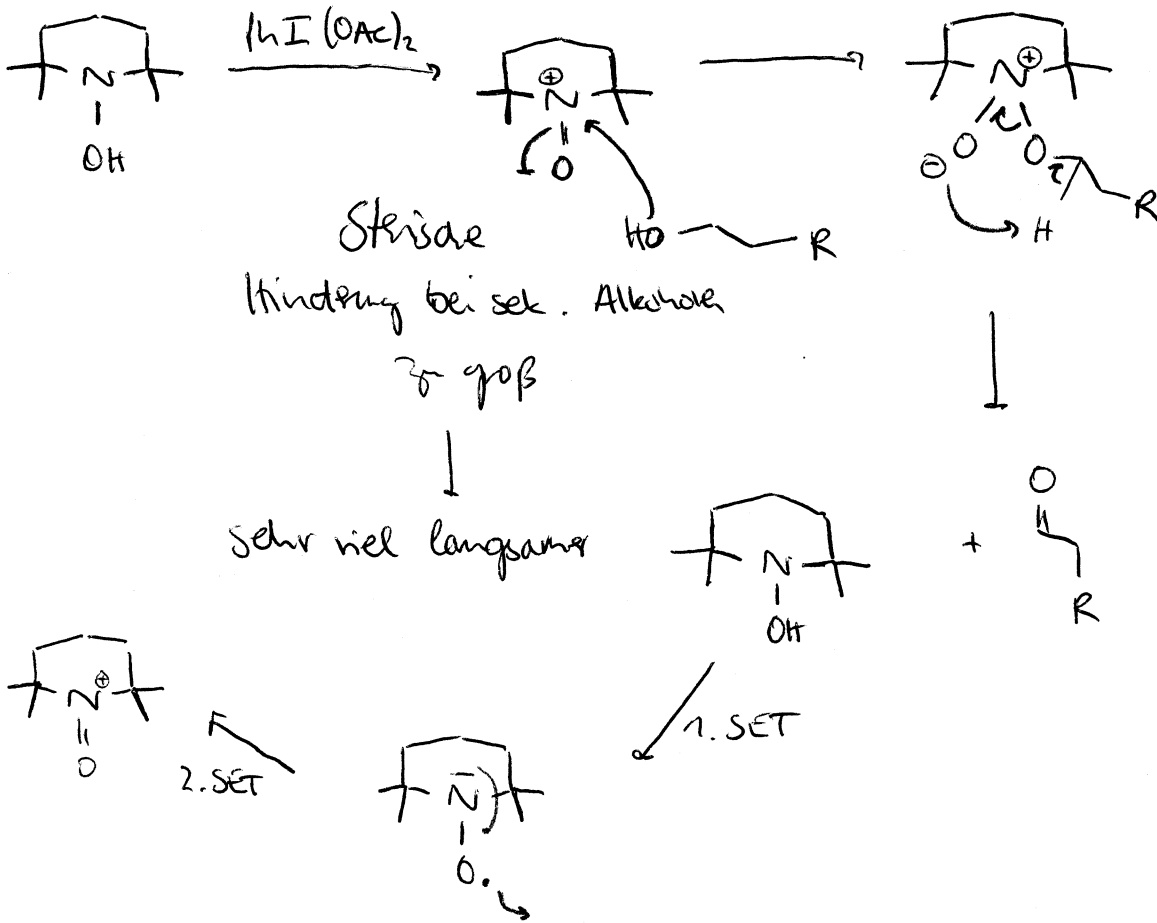 PhI(OAc)₂
⊕
⊕
N
N
N
OH
O
O
O
⊖
H
R
Sterische
HO
R
Hinderung bei sek. Alkoholen
zu groß
sehr viel langsamer
O
N
+
OH
R
⊕
N
O
1. SET
2. SET
N
O.